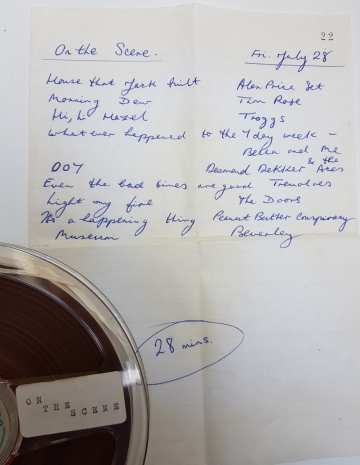 22
On the Scene. Fri. July 28
House that Jack built Alan Price Set
Morning Dew Tim Rose
Hi, Lo Hazel Troggs
Whatever happened to the 7 day week -
Bella and Me
007 Desmond Dekker & the Aces
Even the bad times are good Tremeloes
Light my fire The Doors
It's a happening thing Peanut Butter Conspiracy
Museum Beverley
28 mins.
ON
THE
SCENE